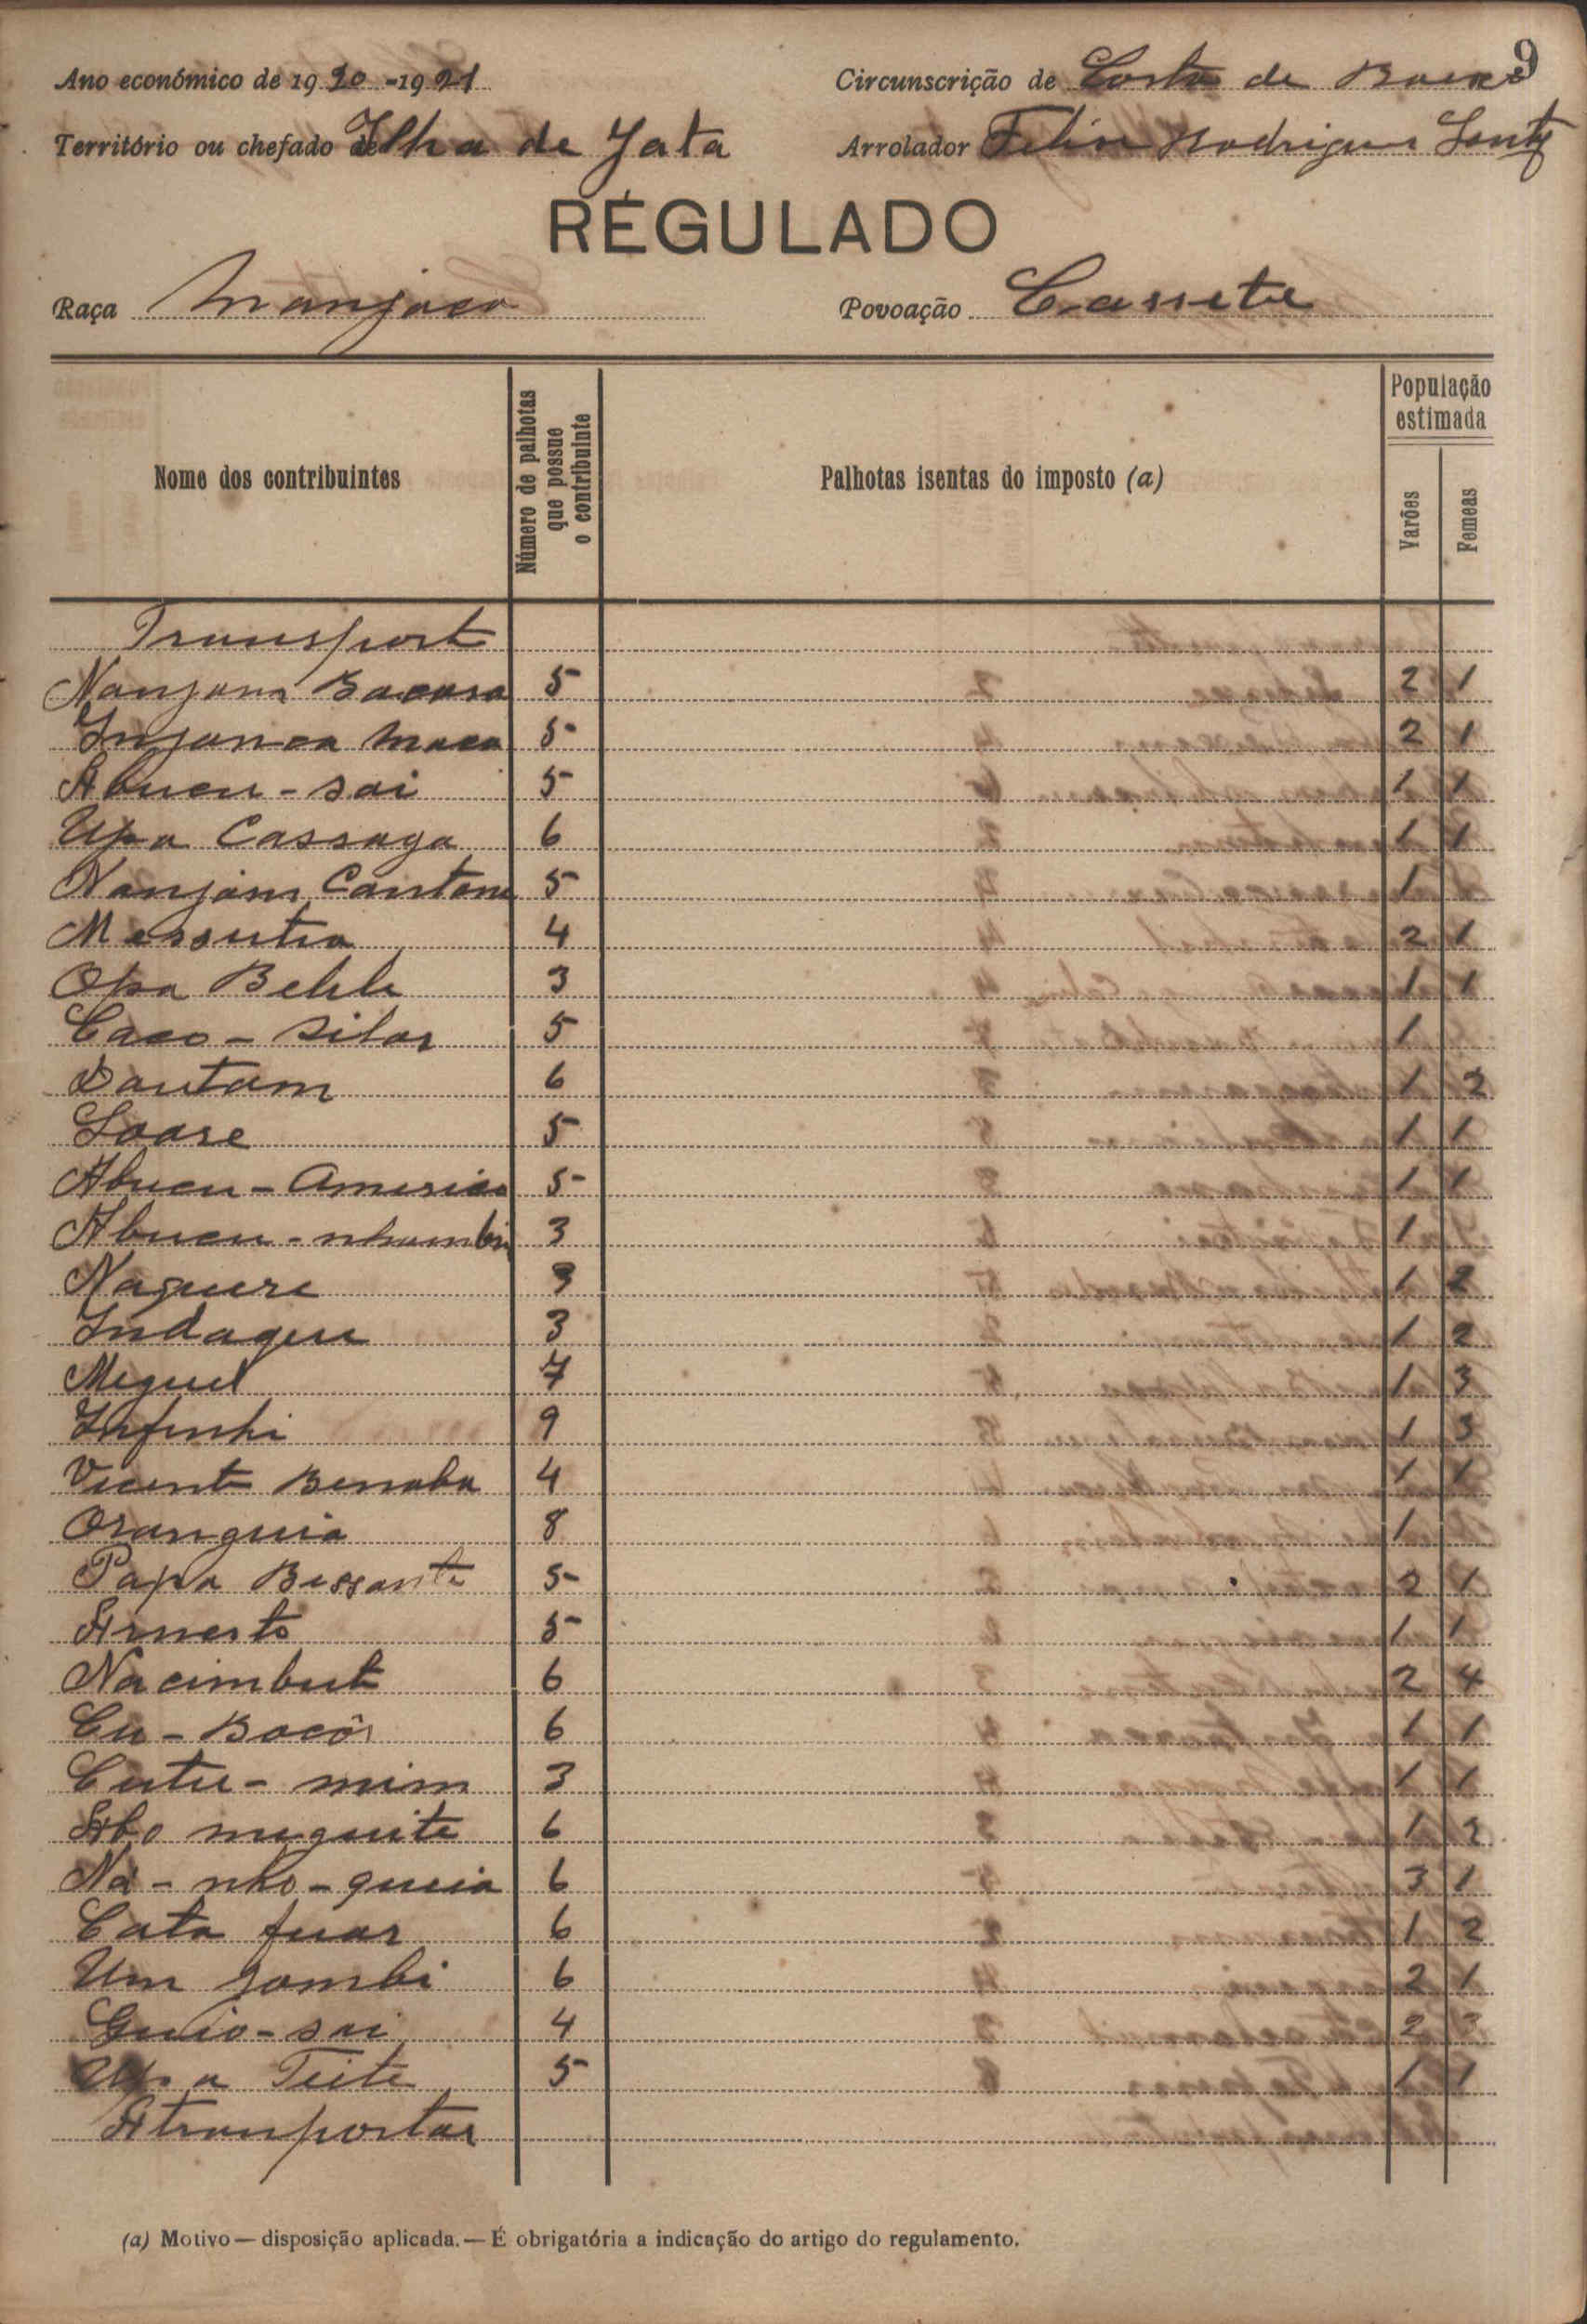 9
Ano económico de 1920-1921 Circunscrição de Costa de Baixo
Território ou chefado de Ilha de Jata Arrolador Felix Rodrigues
REGULADO
Raça Manjaco Povoação
Nome dos contribuintes Número de palhotas que possue o contribuinte Palhotas isentas do imposto (a) População estimada
Varões Femeas
Transport
Nanjam 5 2 1
maca 5 2 1
Abucu - sai 5 1 1
Upa Cassaga 6 1 1
Nanjam 5 1
Messutra 4 2 1
Opa 3 1 1
Caco - silar 5 1
Dautam 6 1 2
Soare 5 1 1
Abucu - Americo 5 1 1
Abucu - nhambi 3 1
Naqueri 3 1 2
Indaqui 3 1 2
Miguel 7 1 3
9 1 3
Vicente 4 1 1
Oranquia 8 1
Papa Bissante 5 2 1
Arnesto 5 1 1
Nacimbut 6 2 4
Cu - Bocôr 6 1 1
Cutu - mim 3 1 1
Abo muguite 6 1 2
Ná - nho - queia 6 3 1
Cata fuar 6 1 2
Um jombi 6 2 1
Guio - sai 4 2
Upa Teite 5 1 1
A transportar
(a) Motivo — disposição aplicada. — É obrigatória a indicação do artigo do regulamento.